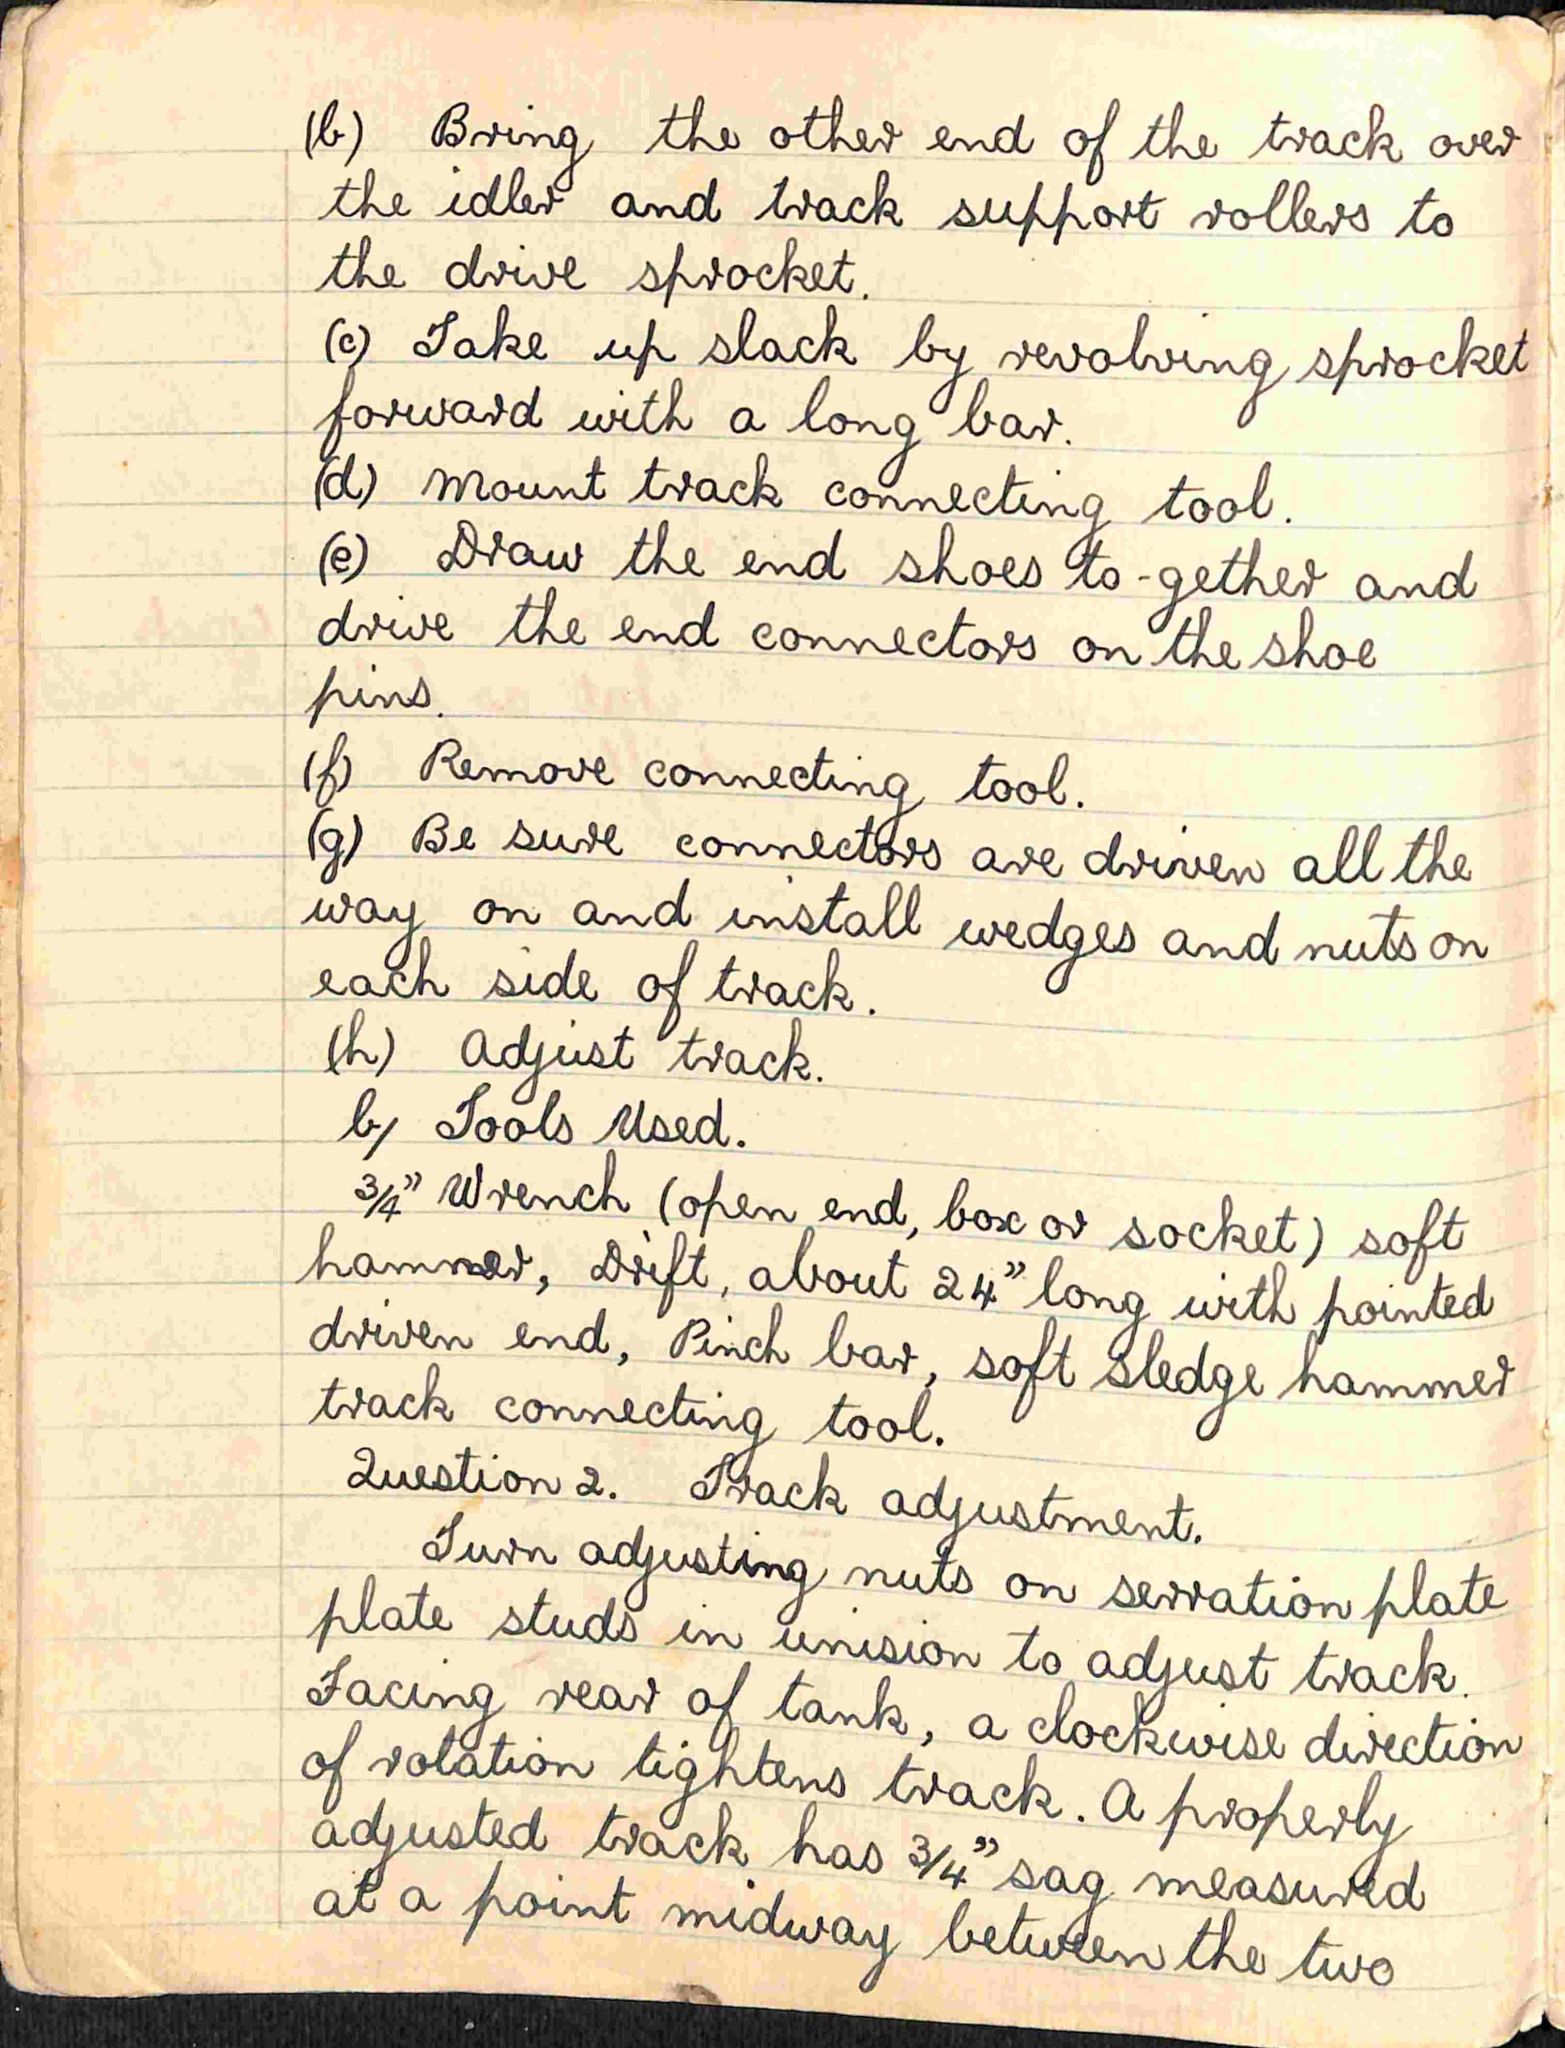 (b) Bring the other end of the track over
the idler and track support rollers to
the drive sprocket.
(c) Take up slack by revolving sprocket
forward with a long bar.
(d) Mount track connecting tool.
(e) Draw the end shoes to-gether and
drive the end connectors on the shoe
pins.
(f) Remove connecting tool.
(g) Be sure connectors are driven all the
way on and install wedges and nuts on
each side of track.
(h) Adjust track.
b) Tools Used.
3/4" Wrench (open end, box or socket) soft
hammer, Drift, about 24" long with pointed
driven end, Pinch bar, soft sledge hammer
track connecting tool.
Question 2. Track adjustment.
Turn adjusting nuts on serration plate
plate studs in unision to adjust track.
Facing rear of tank, a clockwise direction
of rotation tightens track. A properly
adjusted track has 3/4" sag measured
at a point midway between the two